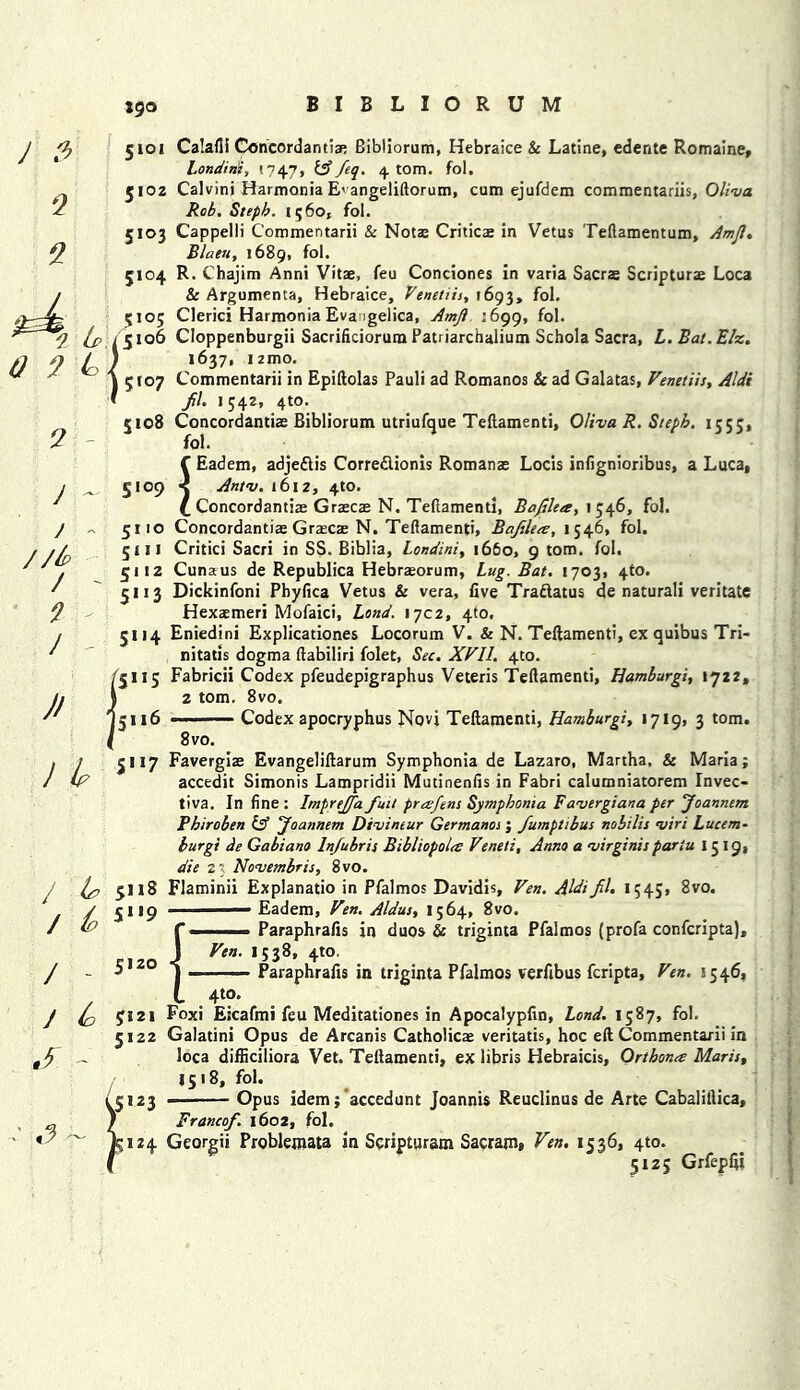 190 BIBLIORUM
5101 Calaſii Concordantiæ Bibliorum, Hebraice & Latine, edente Romaine,
Londini, 1747, & ſeq. 4 tom. fol.
5102 Calvini Harmonia Evangeliſtorum, cum ejuſdem commentariis, Oliva
Rob. Steph. 1560, fol.
5103 Cappelli Commentarii & Notæ Criticæ in Vetus Teſtamentum, Amſt.
Blaeu, 1689, fol.
5104 R. Chajim Anni Vitæ, ſeu Conciones in varia Sacræ Scripturæ Loca
& Argumenta, Hebraice, Venetiis, 1693, fol.
5105 Clerici Harmonia Evangelica, Amſt 1699, fol.
5106 Cloppenburgii Sacrificiorum Patriarchalium Schola Sacra, L. Bat. Elz.
1637, 12mo.
5107 Commentarii in Epiſtolas Pauli ad Romanos & ad Galatas, Venetiis, Aldi
fil. 1542, 4to.
5108 Concordantiæ Bibliorum utriuſque Teſtamenti, Oliva R. Steph. 1555,
fol.
Eadem, adjectis Correctionis Romanæ Locis inſignioribus, a Luca,
5109 Antv. 1612, 4to.
Concordantiæ Græcæ N. Teſtamenti, Baſileæ, 1546, fol.
5110 Concordantiæ Græcæ N. Teſtamenti, Baſileæ, 1546, fol.
5111 Critici Sacri in SS. Biblia, Londini, 1660, 9 tom. fol.
5112 Cunæus de Republica Hebræorum, Lug. Bat. 1703, 4to.
5113 Dickinſoni Phyſica Vetus & vera, ſive Tractatus de naturali veritate
Hexæmeri Moſaici, Lond. 1702, 4to.
5114 Eniedini Explicationes Locorum V. & N. Teſtamenti, ex quibus Tri-
nitatis dogma ſtabiliri ſolet, Sec. XVII. 4to.
5115 Fabricii Codex pſeudepigraphus Veteris Teſtamenti, Hamburgi, 1722,
2 tom. 8vo.
5116 ——— Codex apocryphus Novi Teſtamenti, Hamburgi, 1719, 3 tom.
8vo.
5117 Favergiæ Evangeliſtarum Symphonia de Lazaro, Martha, & Maria;
accedit Simonis Lampridii Mutinenſis in Fabri calumniatorem Invec-
tiva. In fine: Impreſſa fuit præſens Symphonia Favergiana per Joannem
Phiroben & Joannem Divineur Germanos; ſumptibus nobilis viri Lucem-
burgi de Gabiano Inſubris Bibliopolæ Veneti, Anno a virginis partu 1519,
die 23 Novembris, 8vo.
5118 Flaminii Explanatio in Pſalmos Davidis, Ven. Aldi fil. 1545, 8vo.
5119 ——— Eadem, Ven. Aldus, 1564, 8vo.
——— Paraphraſis in duos & triginta Pſalmos (proſa conſcripta),
Ven. 1538, 4to.
5120 ——— Paraphraſis in triginta Pſalmos verſibus ſcripta, Ven. 1546,
4to.
5121 Foxi Eicaſmi ſeu Meditationes in Apocalypſin, Lond. 1587, fol.
5122 Galatini Opus de Arcanis Catholicæ veritatis, hoc eſt Commentarii in
loca difficiliora Vet. Teſtamenti, ex libris Hebraicis, Orthonæ Maris,
1518, fol.
5123 ——— Opus idem; accedunt Joannis Reuclinus de Arte Cabaliſtica,
Francof. 1602, fol.
5124 Georgii Problemata in Scripturam Sacram, Ven. 1536, 4to.
5125 Grſepſii